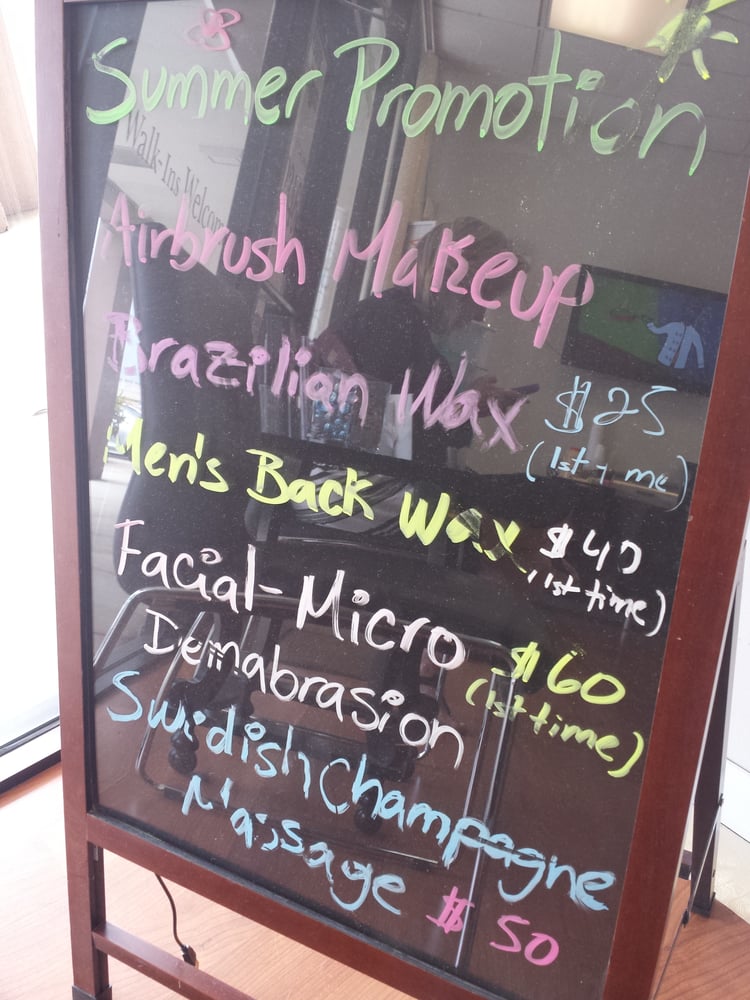 Summer Promotion
Walk-Ins Welcome
Airbrush Makeup
Brazilian Wax $25
(1st time)
Men's Back Wax $40
(1st time)
Facial-Micro
Demabrasion $60
(1st time)
Swidish Champagne
Massage $50